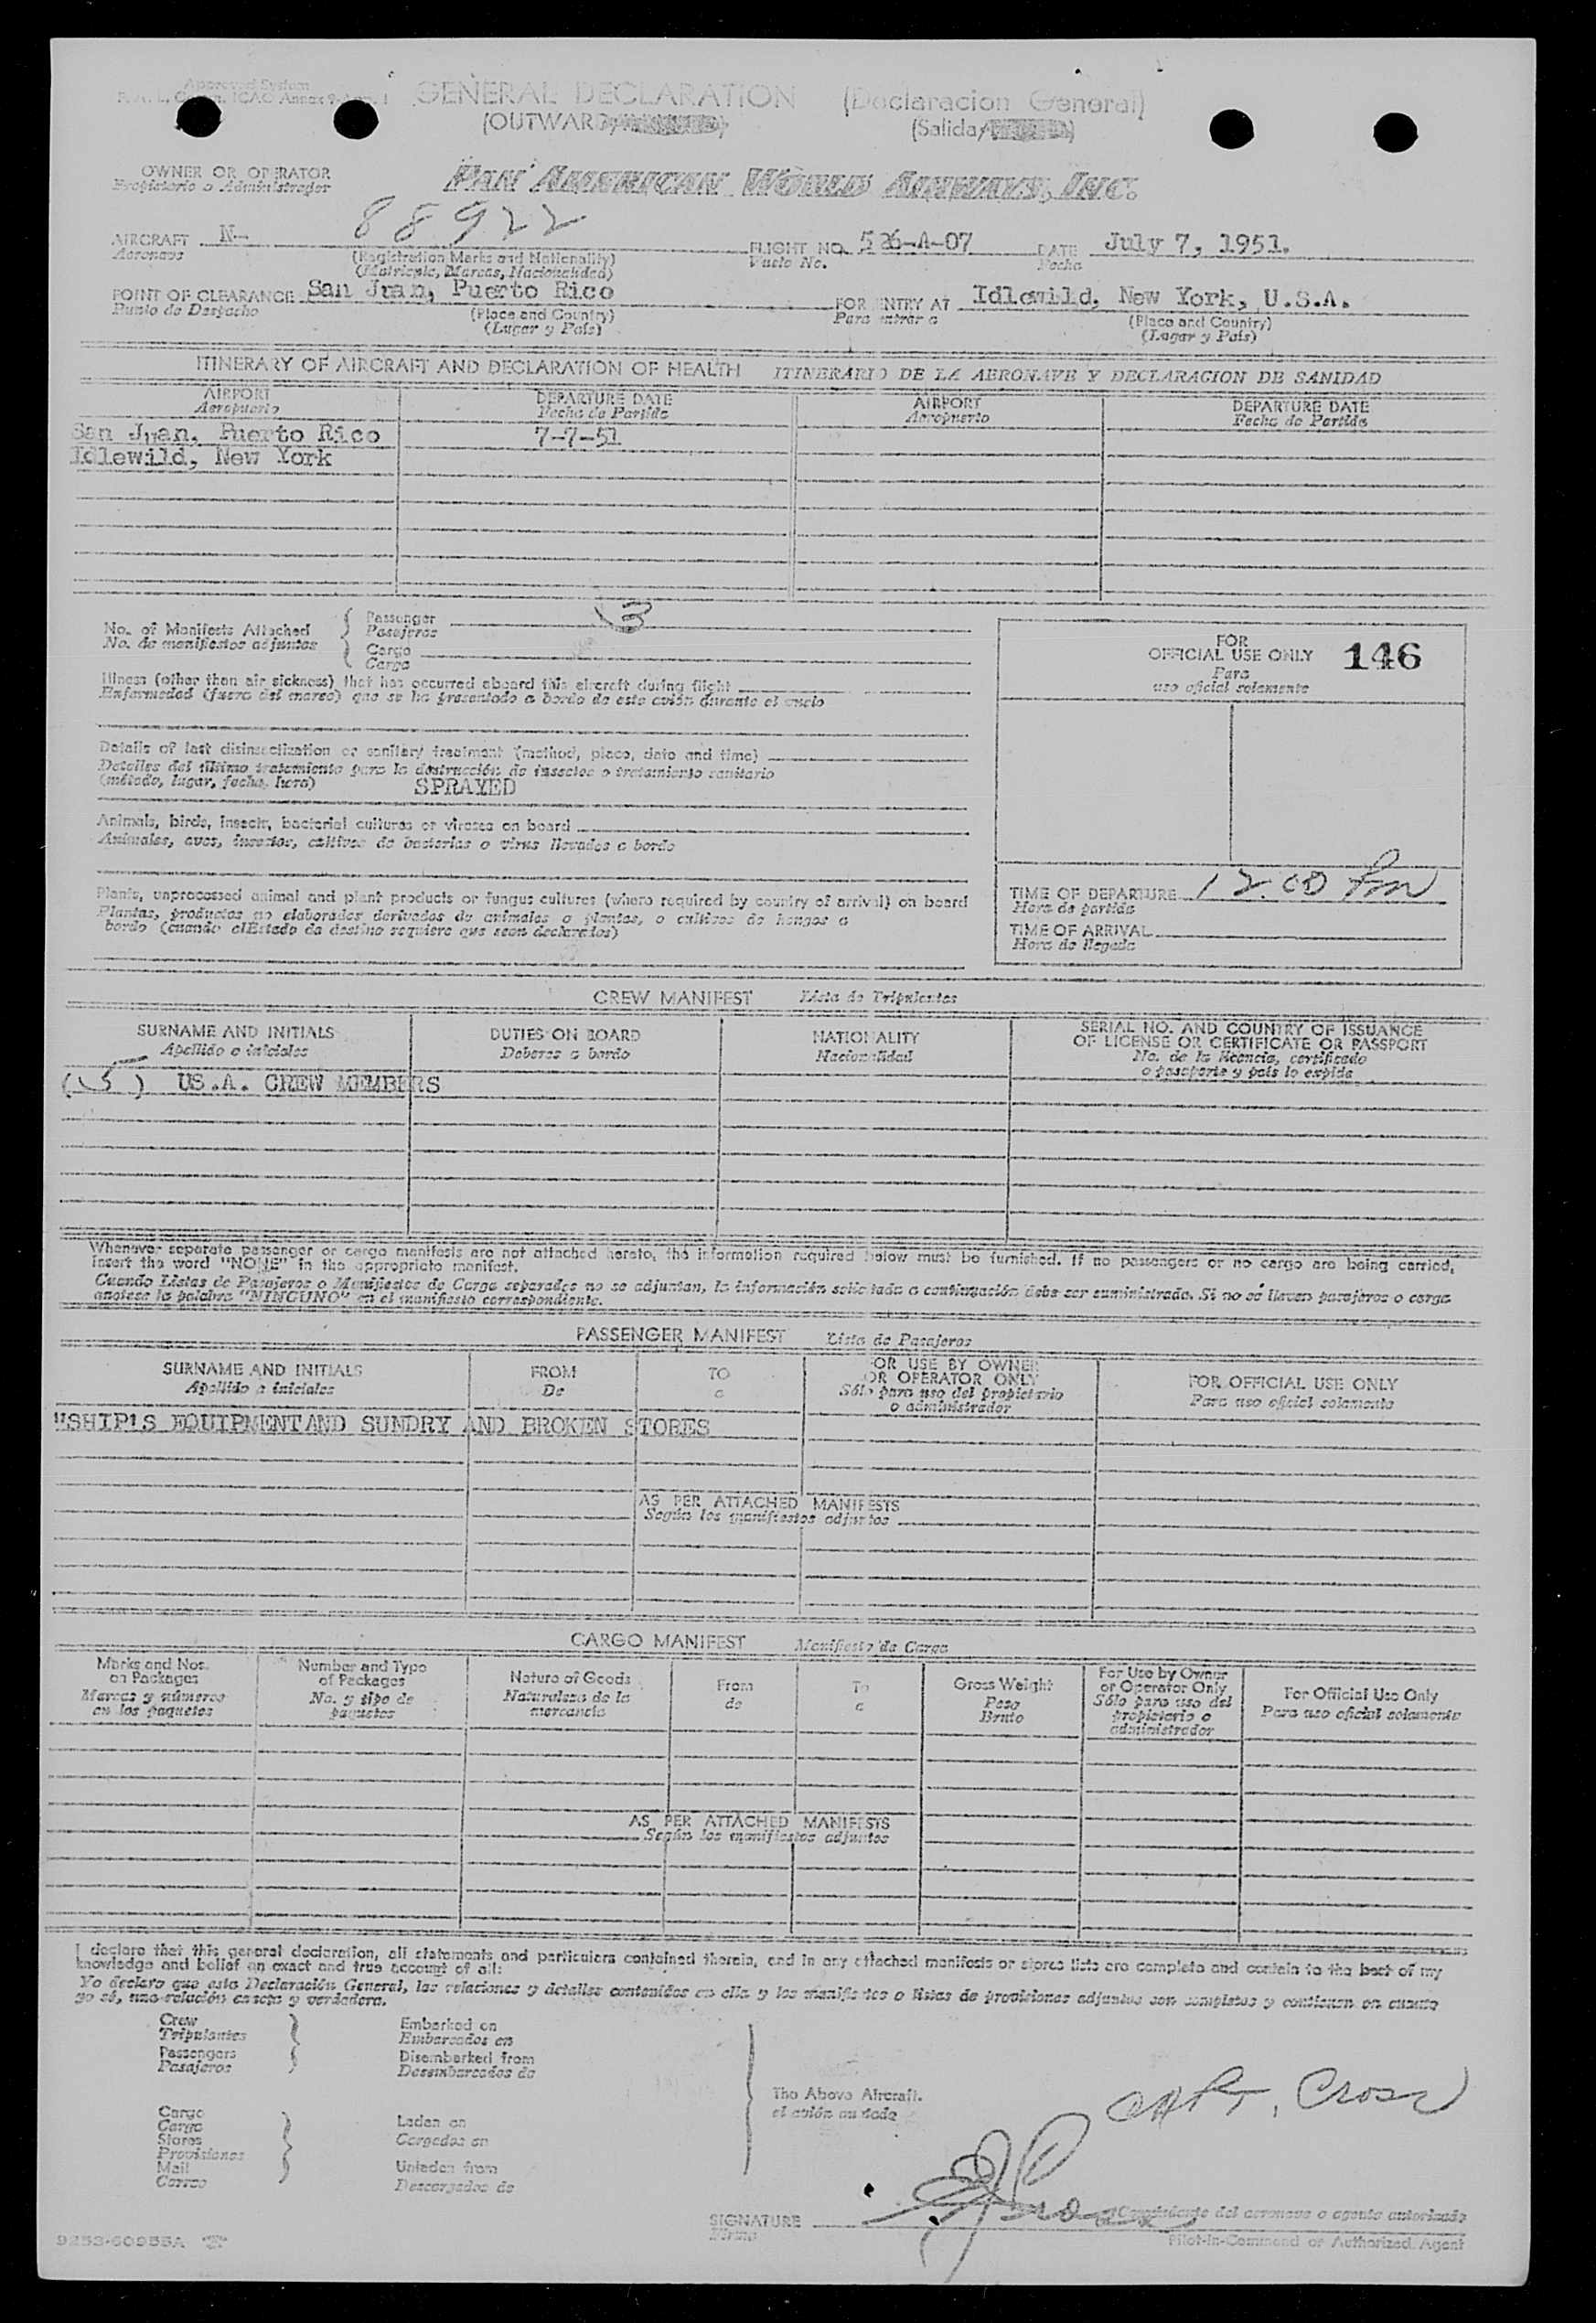 Approved System
GENERAL DECLARATION (Declaracion General)
(OUTWARD/
(Salida/
OWNER OR OPERATOR
Propietario o Administrador
PAN AMERICAN WORLD AIRWAYS, INC.
AIRCRAFT N- 88922 FLIGHT NO. 526-A-07 DATE July 7, 1951.
Aeronave Vuelo No. Fecha
(Registration Marks and Nationality)
(Matricula, Marcas, Nacionalidad)
POINT OF CLEARANCE San Juan, Puerto Rico FOR ENTRY AT Idlewild, New York, U.S.A.
Punto de Despacho Para entrar a
(Place and Country) (Place and Country)
(Lugar y País) (Lugar y País)
ITINERARY OF AIRCRAFT AND DECLARATION OF HEALTH ITINERARIO DE LA AERONAVE Y DECLARACION DE SANIDAD
AIRPORT DEPARTURE DATE AIRPORT DEPARTURE DATE
Aeropuerto Fecha de Partida Aeropuerto Fecha de Partida
San Juan, Puerto Rico 7-7-51
Idlewild, New York
No. of Manifests Attached
No. de manifiestos adjuntos
Passenger 3
Pasajeros
Cargo
Carga
Illness (other than air sickness) that has occurred aboard this aircraft during flight
Enfermedad (fuera del mareo) que se ha presentado a bordo de este avión durante el vuelo
Details of last disinsectization or sanitary treatment (method, place, date and time)
Detalles del último tratamiento para la destrucción de insectos o tratamiento sanitario
(método, lugar, fecha, hora) SPRAYED
Animals, birds, insects, bacterial cultures or viruses on board
Animales, aves, insectos, cultivos de bacterias o virus llevados a bordo
Plants, unprocessed animal and plant products or fungus cultures (where required by country of arrival) on board
Plantas, productos no elaborados derivados de animales o plantas, o cultivos de hongos a
bordo (cuando el Estado de destino requiere que sean declarados)
FOR
OFFICIAL USE ONLY 146
Para
uso oficial solamente
TIME OF DEPARTURE 12.00 Pm
Hora de partida
TIME OF ARRIVAL
Hora de llegada
CREW MANIFEST Lista de Tripulantes
SURNAME AND INITIALS DUTIES ON BOARD NATIONALITY SERIAL NO. AND COUNTRY OF ISSUANCE
OF LICENSE OR CERTIFICATE OR PASSPORT
Apellido e iniciales Deberes a bordo Nacionalidad No. de la licencia, certificado
o pasaporte y país lo expide
(5) US.A. CREW MEMBERS
Whenever separate passenger or cargo manifests are not attached hereto, the information required below must be furnished. If no passengers or no cargo are being carried,
insert the word "NONE" in the appropriate manifest.
Cuando Listas de Pasajeros o Manifiestos de Carga separados no se adjuntan, la información solicitada a continuación debe ser suministrada. Si no se llevan pasajeros o carga
anotese la palabra "NINGUNO" en el manifiesto correspondiente.
PASSENGER MANIFEST Lista de Pasajeros
SURNAME AND INITIALS FROM TO FOR USE BY OWNER
OR OPERATOR ONLY FOR OFFICIAL USE ONLY
Apellido e iniciales De a Sólo para uso del propietario
o administrador Para uso oficial solamente
"SHIP'S EQUIPMENT AND SUNDRY AND BROKEN STORES
AS PER ATTACHED MANIFESTS
Según los manifiestos adjuntos
CARGO MANIFEST Manifiesto de Carga
Marks and Nos.
on Packages
Marcas y números
en los paquetes
Number and Type
of Packages
No. y tipo de
paquetes
Nature of Goods
Naturaleza de la
mercancía
From
de
To
a
Gross Weight
Peso
Bruto
For Use by Owner
or Operator Only
Sólo para uso del
propietario o
administrador
For Official Use Only
Para uso oficial solamente
AS PER ATTACHED MANIFESTS
Según los manifiestos adjuntos
I declare that this general declaration, all statements and particulars contained therein, and in any attached manifests or stores lists are complete and contain to the best of my
knowledge and belief an exact and true account of all:
Yo declaro que esta Declaración General, las relaciones y detalles contenidos en ella y los manifiestos o listas de provisiones adjuntos son completos y contienen en cuanto
yo sé, una relación exacta y verdadera.
Crew Embarked on
Tripulantes Embarcados en
Passengers Disembarked from
Pasajeros Desembarcados de
The Above Aircraft.
Cargo
Carga Laden on
Stores Cargados en
Provisiones
Mail Unladen from
Correo Descargados de
CAPT. Cross
SIGNATURE
Firma
Comandante del aeronave o agente autorizado
Pilot-in-Command or Authorized Agent